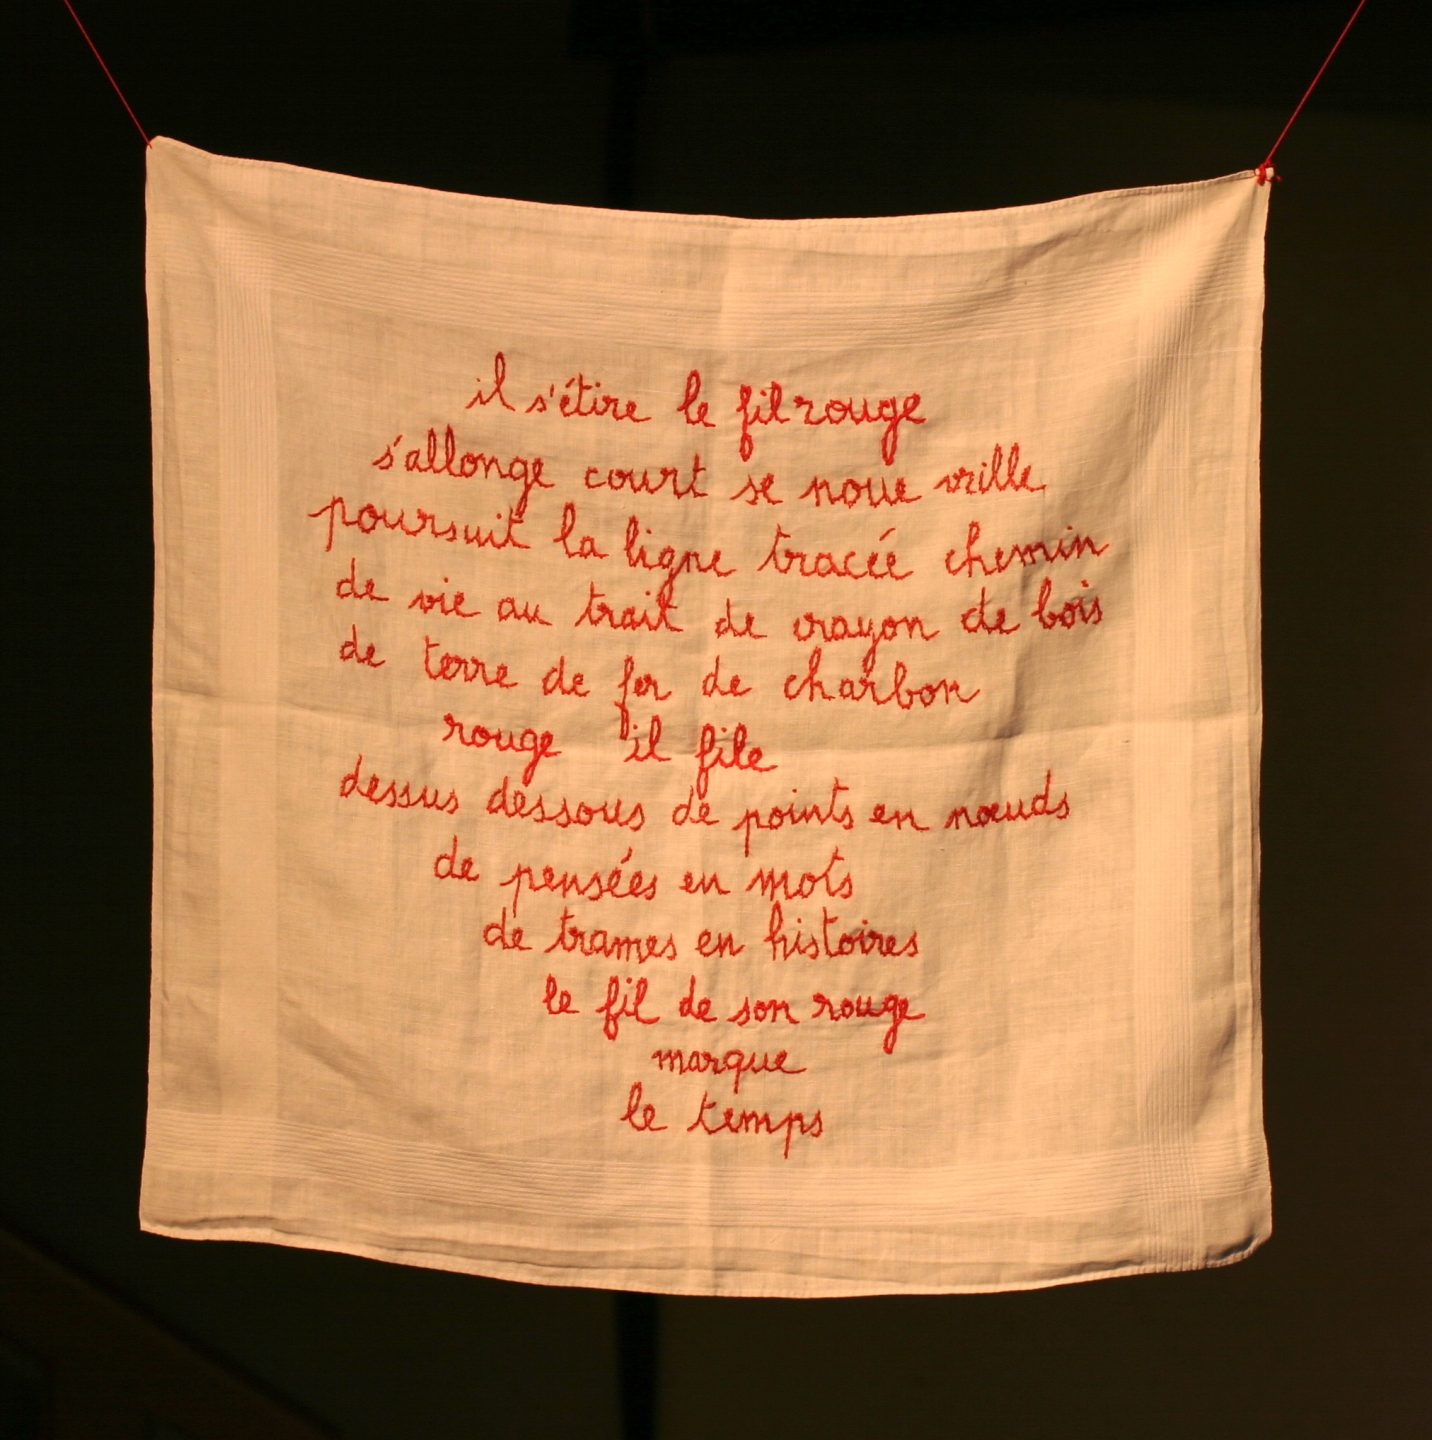 il s'étire le fil rouge
s'allonge court se noue vrille
poursuit la ligne tracée chemin
de vie au trait de crayon de bois
de terre de fer de charbon
rouge il file
dessus dessous de points en nœuds
de pensées en mots
de trames en histoires
le fil de son rouge
marque
le temps